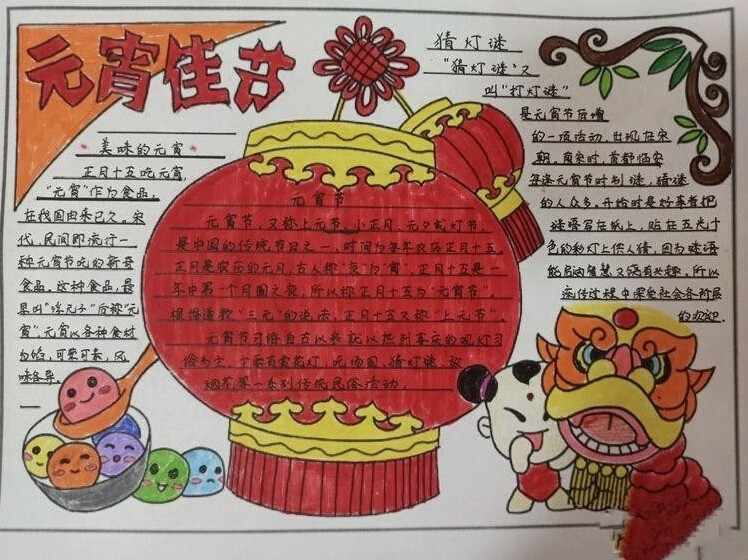 元宵佳节
美味的元宵
正月十五吃元宵,
"元宵"作为食品,
在我国由来已久。宋
代,民间即流行一
种元宵节吃的新奇
食品。这种食品,最
早叫"浮元子"后称"元
宵"。元宵以各种食材
为馅,可荤可素,风
味各异。
元宵节
元宵节,又称上元节、小正月、元夕或灯节,
是中国的传统节日之一,时间为每年农历正月十五。
正月是农历的元月,古人称"夜"为"宵",正月十五是一
年中第一个月圆之夜,所以称正月十五为"元宵节"。
根据道教"三元"的说法,正月十五又称"上元节"。
元宵节习俗自古以来就以热烈喜庆的观灯习
俗为主,主要有赏花灯、吃汤圆、猜灯谜、放
烟花等一系列传统民俗活动。
猜灯谜
"猜灯谜"又
叫"打灯谜"
是元宵节后增
的一项活动,出现在宋
朝。南宋时,首都临安
每逢元宵节时制谜,猜谜
的人众多。开始时是好事者把
谜语写在纸上,贴在五光十
色的彩灯上供人猜,因为谜语
能启迪智慧又饶有兴趣,所以
流传过程中深受社会各阶层
的欢迎。